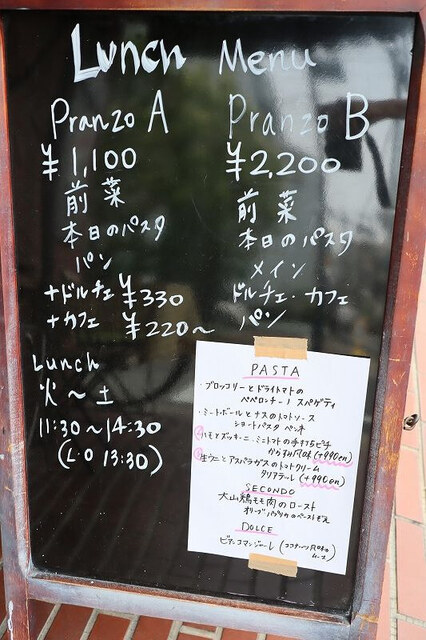 Lunch Menu
Pranzo A
¥1,100
前菜
本日のパスタ
パン
+ドルチェ ¥330
+カフェ ¥220~
Pranzo B
¥2,200
前菜
本日のパスタ
メイン
ドルチェ・カフェ
パン
Lunch
火~土
11:30~14:30
(L.O 13:30)
PASTA
・ブロッコリーとドライトマトの
ペペロンチーノ スパゲティ
・ミートボールとナスのトマトソース
ショートパスタ ペンネ
ハモとズッキーニ・ミニトマトの手打ちピチ
からすみ風味 (+990en)
生ウニとアスパラガスのトマトクリーム
タリアテーレ (+990en)
SECONDO
大山鶏もも肉のロースト
オリーブ
DOLCE
ビアンコマンジャーレ (ココナッツ風味の